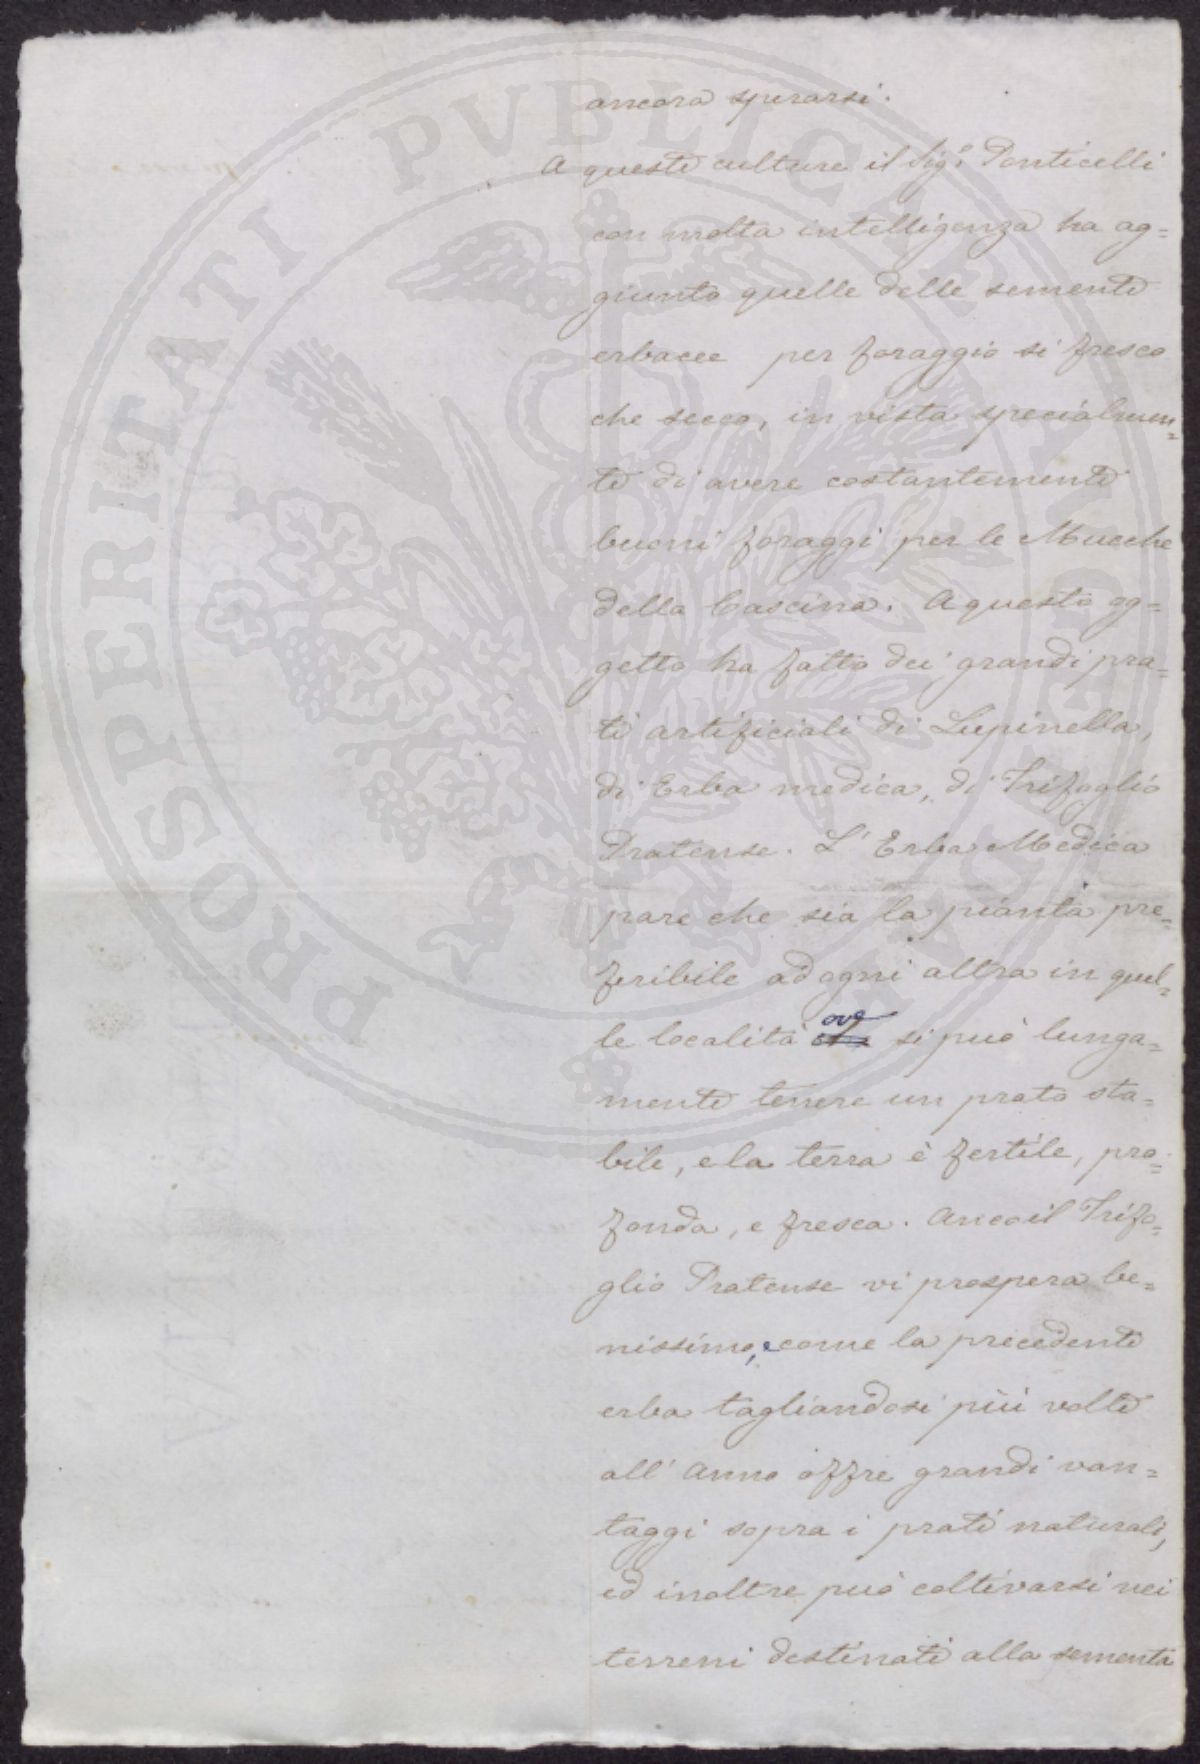 ancora sperarsi.
A queste culture il Sig.r Ponticelli
con molta intelligenza ha ag=
giunto quelle delle sementе
erbacee per foraggio sì fresco
che secco, in vista specialmen=
te di avere costantemente
buoni foraggi per le Mucche
della Cascina. A questo og=
getto ha fatto dei grandi pra=
ti artificiali di Lupinella,
di Erba medica, di Trifoglio
Pratense. L'Erba Medica
pare che sia la pianta pre=
feribile ad ogni altra in quel=
le località ove si può lunga=
mente tenere un prato sta=
bile, e la terra è fertile, pro=
fonda, e fresca. Anco il Trifo=
glio Pratense vi prospera be=
nissimo, e come la precedente
erba tagliandosi più volte
all'Anno offre grandi van=
taggi sopra i prati naturali,
ed inoltre può coltivarsi nei
terreni destinati alla sementa
PROSPERITATI PVBLICAE AVGENDAE